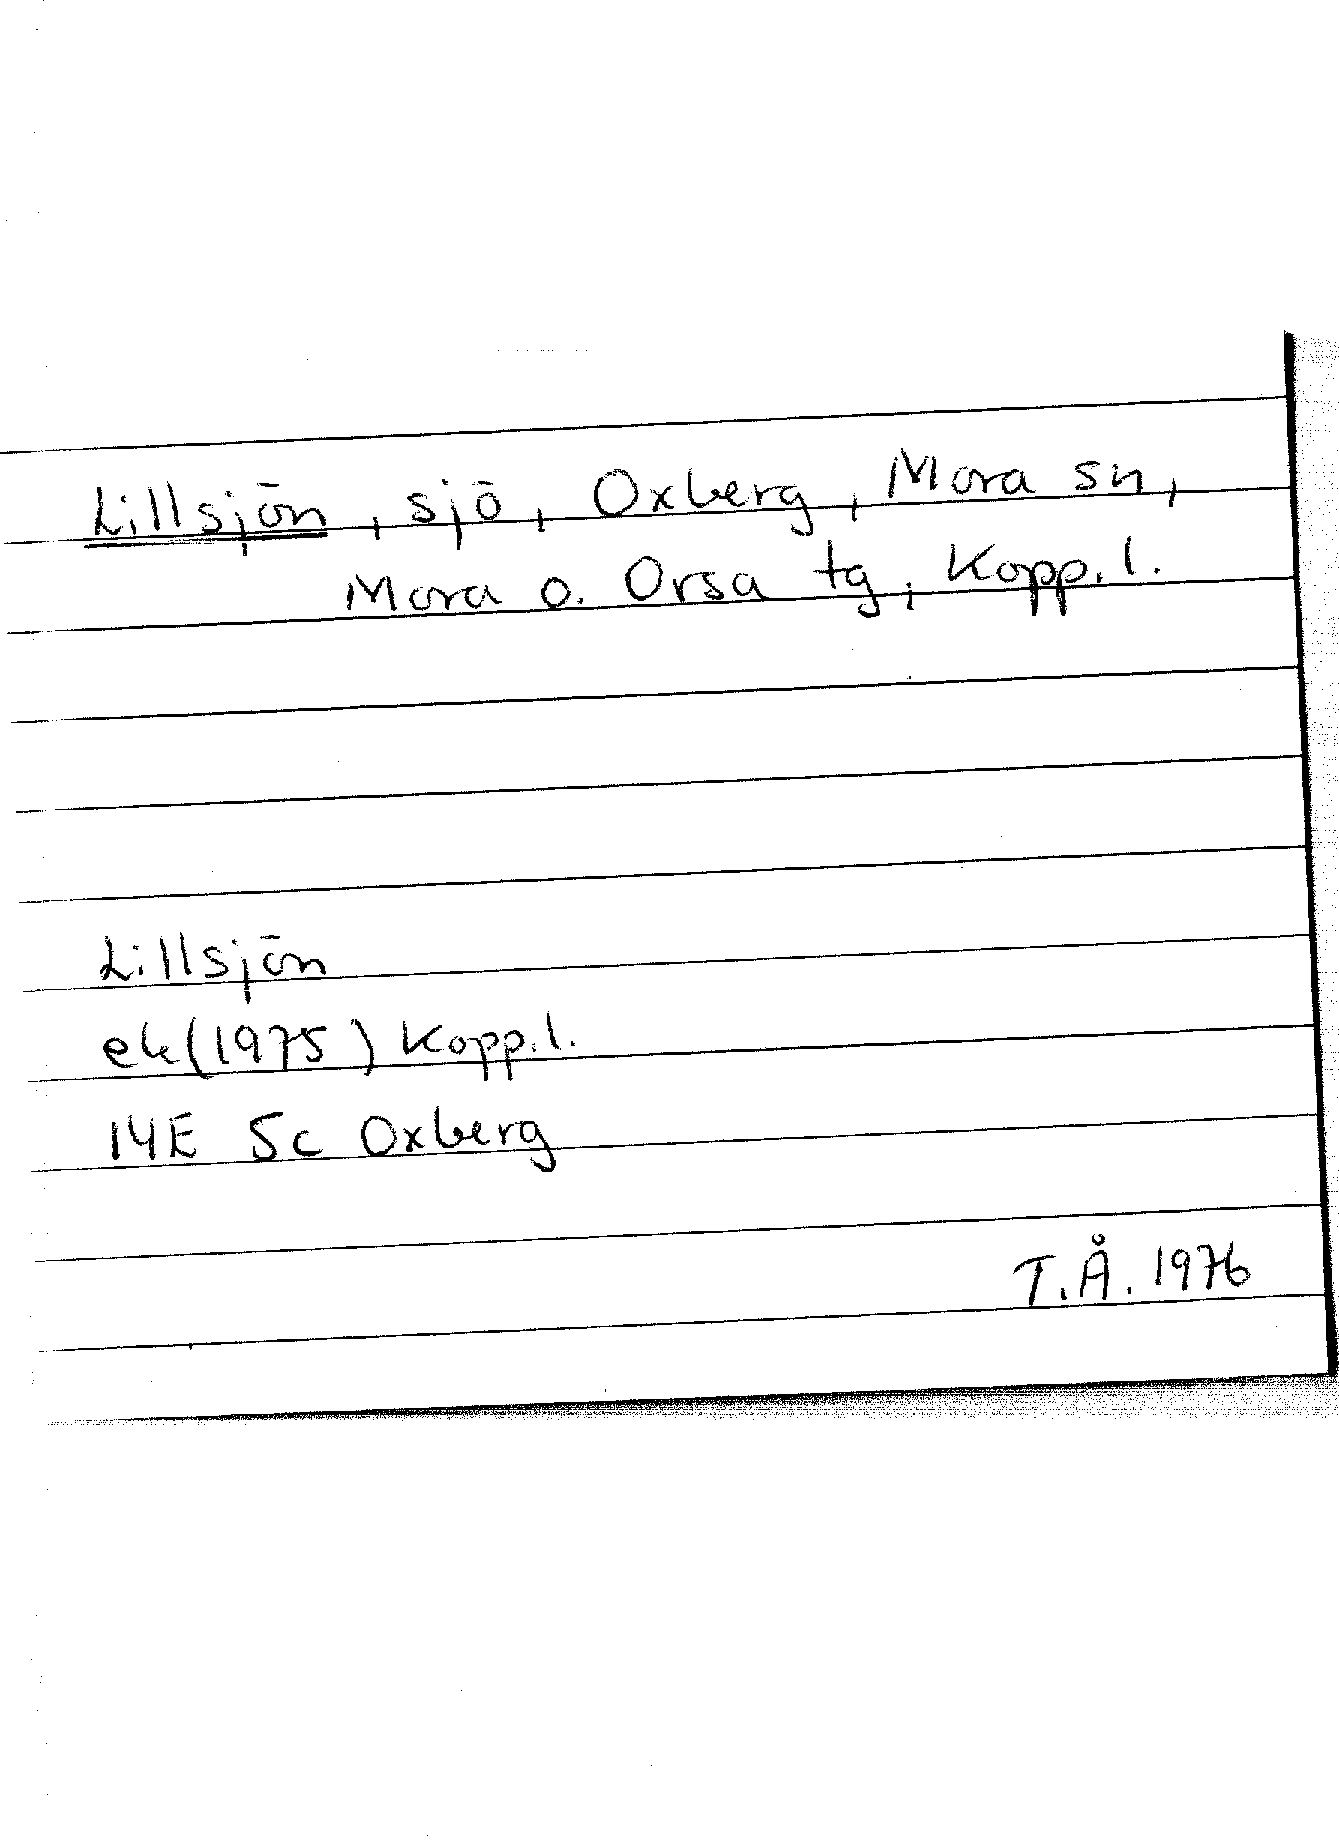 Lillsjön, sjö, Oxberg, Mora sn,
Mora o. Orsa tg, Kopp. l.
Lillsjön
ek (1975) Kopp. l.
14E 5c Oxberg
T.Å. 1976